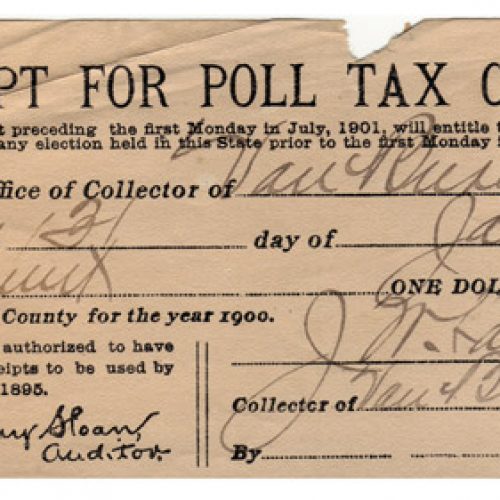 PT FOR POLL TAX O
t preceding the first Monday in July, 1901, will entitle t
any election held in this State prior to the first Monday
ffice of Collector of Van Bur
31 day of Ja
ONE DOL
County for the year 1900.
authorized to have
eipts to be used by
1895.
Sloan,
Auditor.
J
Collector of Van B
By